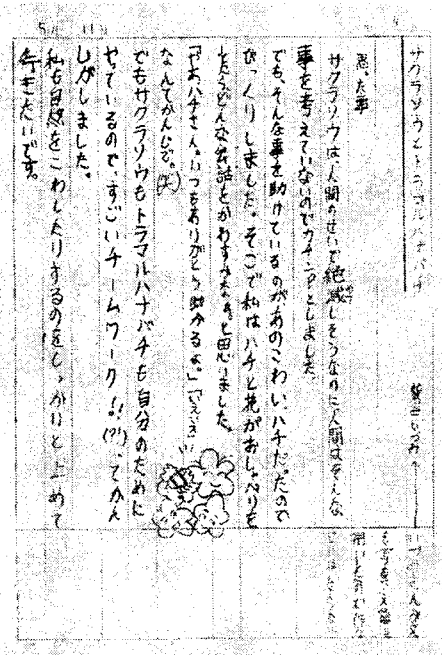 サクラソウとトラマルハナバチ
思った事
サクラソウは、人間のせいで絶滅しそうなのに、人間はそんな
事を考えていないのでカチンとしました。
でも、そんな事を助けているのがあのこわいハチだったので
びっくりしました。そこで私はハチと花がおしゃべりを
したらどんな会話をかわすかなぁと思いました。
「やあ、ハチさん。いつもありがとう助かるよ。」「いえいえ」
なんてかんじで。(笑)
でもサクラソウもトラマルハナバチも自分のために
やっているので、すごいチームワーク!!(?!)ってかん
じがしました。
私も自然をこわしたりするのをしっかりと止めて
行きたいです。